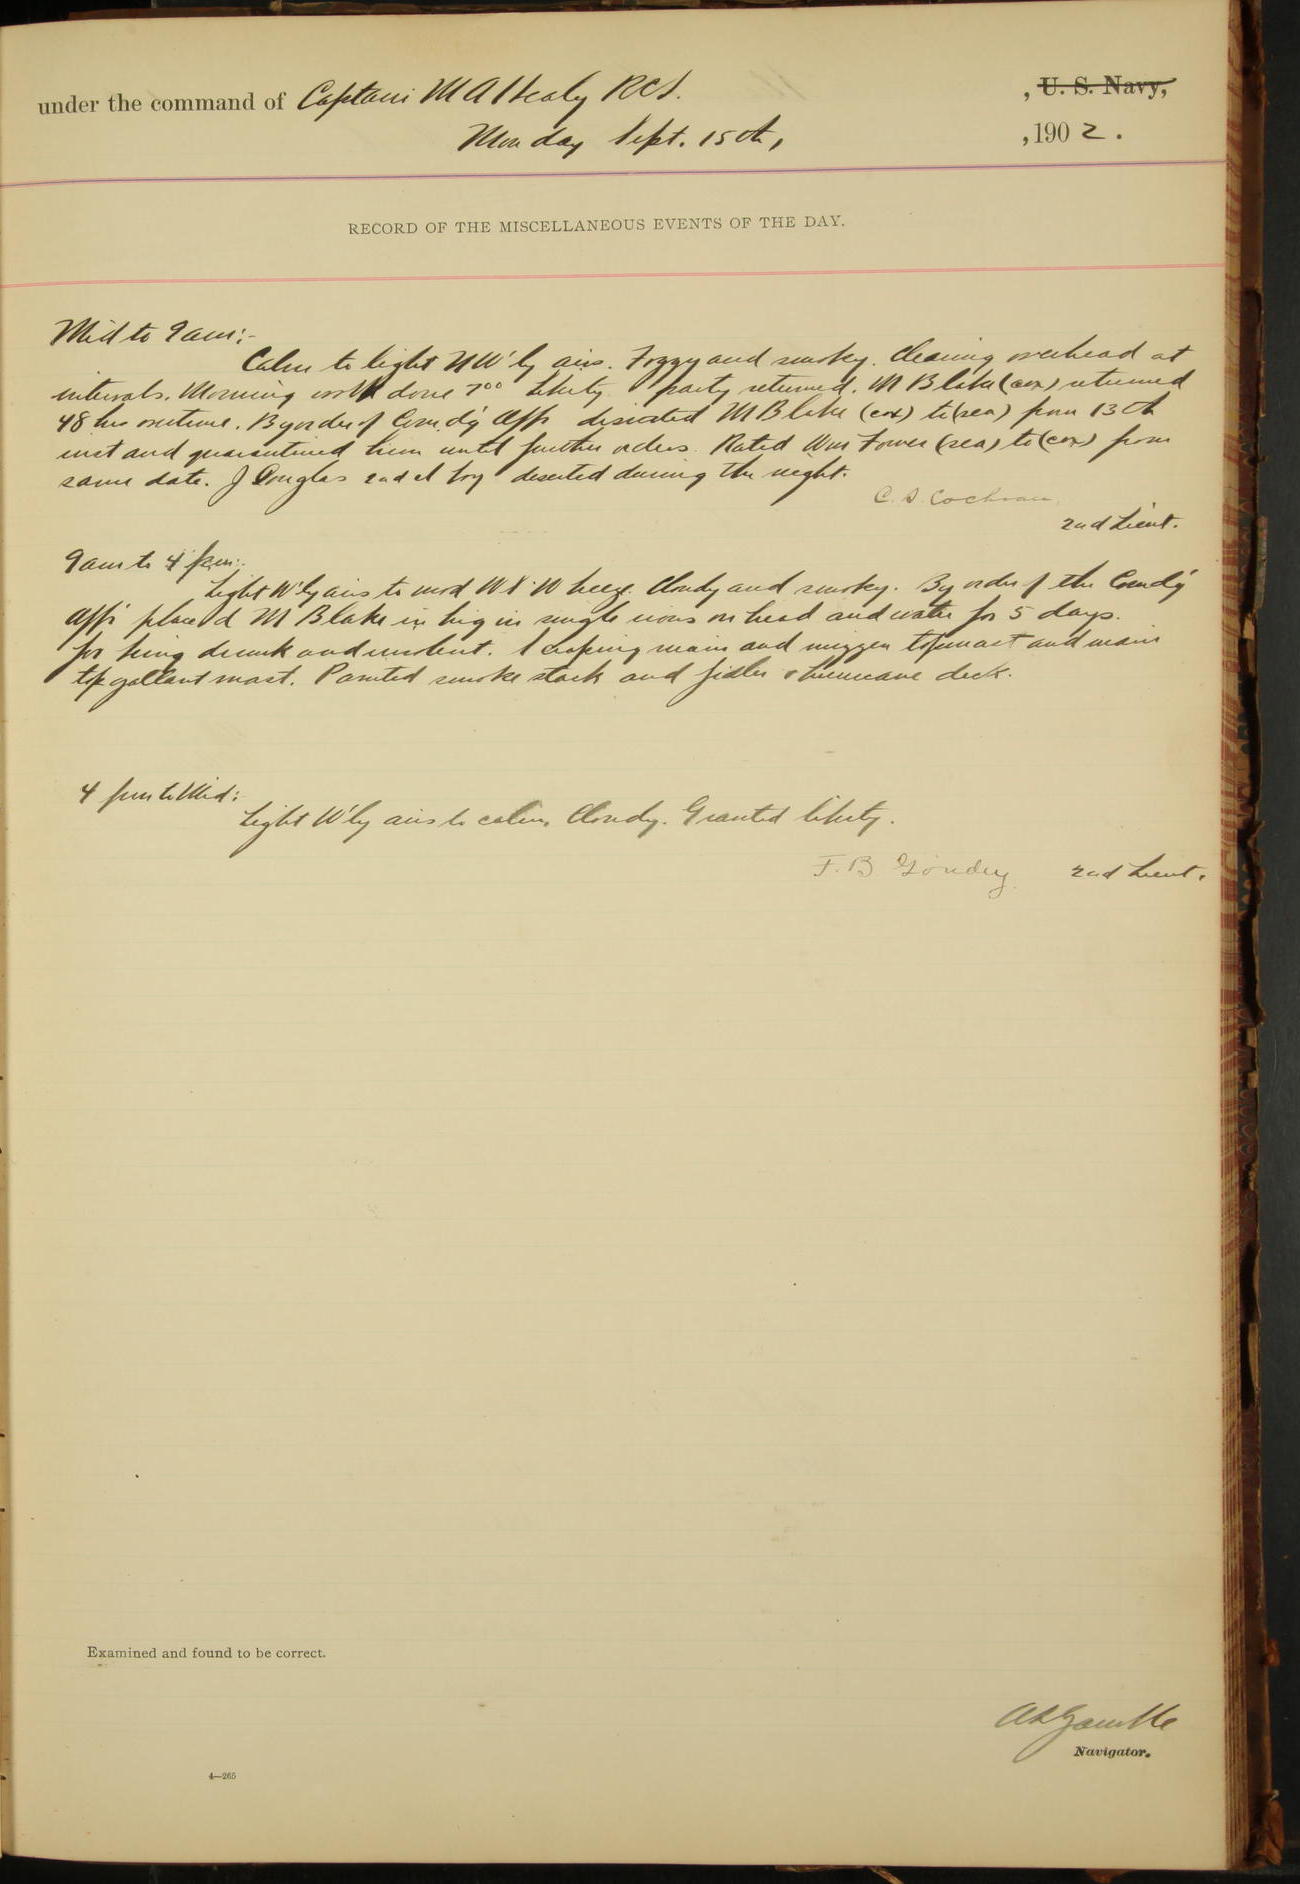 under the command of Captain M A Healy RCS. , U. S. Navy,
Monday Sept. 15th, , 1902.
RECORD OF THE MISCELLANEOUS EVENTS OF THE DAY.
Mid to 9 am:-
Calm to light NW'ly airs. Foggy and smoky. Clearing overhead at
intervals. Morning work done 7 00 liberty party returned. M Blake (cox) returned
48 hrs overtime. By order of Com'dg Offr disrated M Blake (cox) to (sea) from 13th
inst and quarantined him until further orders. Rated Wm Tower (sea) to (cox) from
same date. J Douglas 2nd cl boy deserted during the night.
C. S. Cochran
2nd Lieut.
9 am to 4 pm:
Light W'ly airs to mod breeze. Cloudy and smoky. By order of the Comdg
Offr placed M Blake in brig in single irons on bread and water for 5 days.
for being drunk and insolent. Scraping main and mizzen topmast and main
top gallant mast. Painted smoke stack and hurricane deck.
4 pm to Mid:
Light W'ly airs to calm. Cloudy. Granted liberty.
F. B 2nd Lieut.
Examined and found to be correct.
Gamble
Navigator.
4—265